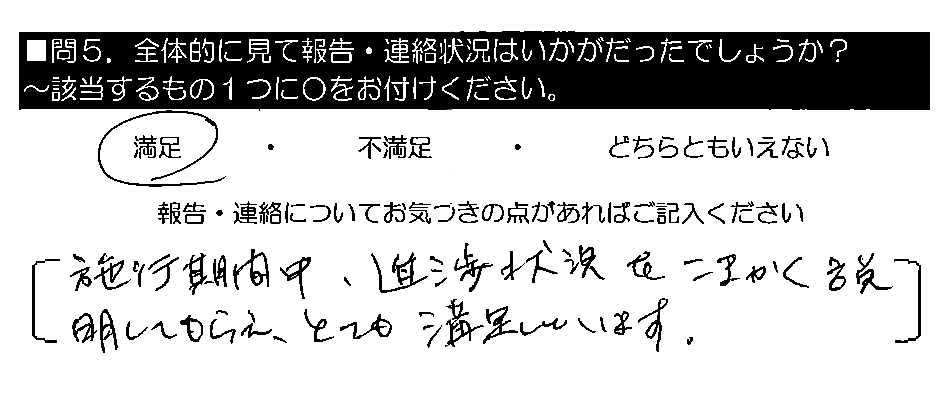 ■問5．全体的に見て報告・連絡状況はいかがだったでしょうか？
～該当するもの1つに〇をお付けください。
満足 ・ 不満足 ・ どちらともいえない
報告・連絡についてお気づきの点があればご記入ください
施行期間中、進渉状況をこまかく説
明してもらえ、とても満足しています。